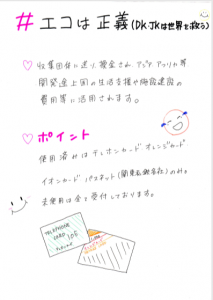 # エコは正義(DK・JKは世界を救う)
♡ 収集団体に送り、換金され アジア アフリカ等
開発途上国の生活支援や施設建設の
費用等に活用されます。
♡ ポイント
使用済みはテレホンカード オレンジカード
イオカード パスネット(関東私鉄各社)のみ。
未使用は全て受付しております。
TELEPHONE
CARD 105